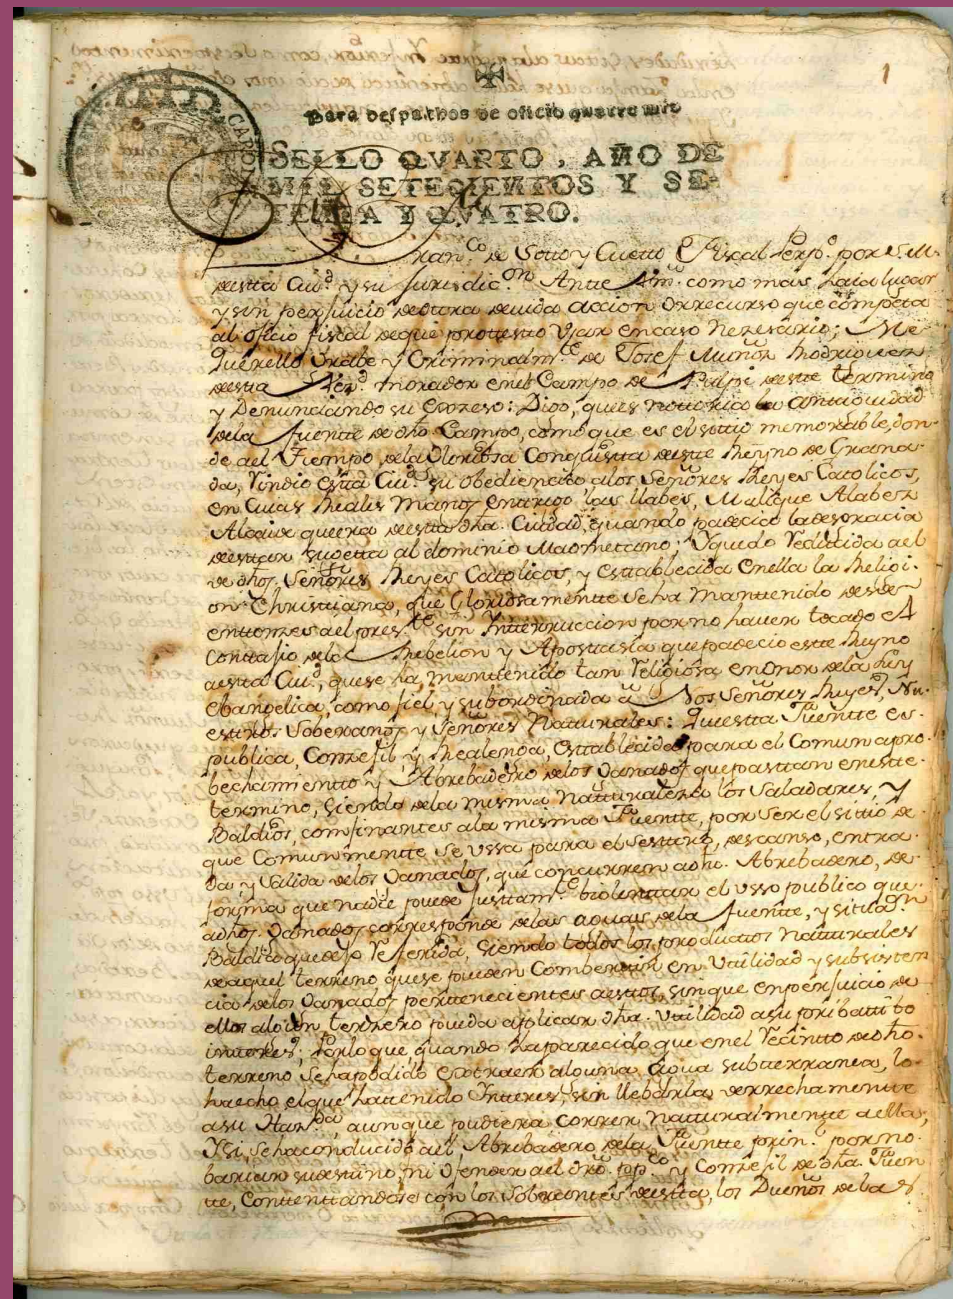 1
Para despachos de oficio quatro mrs
SELLO QVARTO, AÑO DE
MIL SETECIENTOS Y SE-
TENTA Y QVATRO.
Fran.co de Sotto y Cuetto Fiscal por S. M.
desta Ciu.d y su Jurisdic.on Ante Vm. como mas haia lugar
y sin perjuicio de otra devida accion o rrecurso que competa
al oficio fiscal de que protesto Vsar en caso Nezesario; Me
Querello Grabe y Criminalm.te de Josef Muñoz Rodriguez
desta Vez.d morador en el Campo de Pulpi deste termino
y Denunciando su Exzeso: Digo, que es nottoria la antiguidad
de la fuente de dho Campo, como que es el sittio memorable, don-
de al Tiempo de la Gloriosa Conquista deste Reyno de Grana-
da, Rindio esta Ciu.d su obediencia a los Señores Reyes Catolicos,
en Cuias Reales Manos entrego las llabes, Malique Alabez
Alcaide que era desta dha. Ciudad, quando padecio la desgracia
de estar sugetta al dominio Maometano; Y quedo reducida al
de dhos. Señores Reyes Catolicos, y establecida en ella la Religi-
on Christiana, que Gloriosamentte se ha Mantenido desde
entonzes al pres.te sin Intterrupcion por no haver tocado el
Contajio de la Rebelion y Apostasia que padecio este Reyno
a esta Ciu.d, que se ha mantenido tan religiosa en onor de la Ley
Ebangelica, como fiel y subordinada a los Señores Reyes, Nu-
estros Soberanos y Señores Naturales: Que esta Fuente es
publica, Conzejil y Realenga, establecida para el Comun apro-
bechamientto y Abrebadero de los Ganados que pastan en este
termino, siendo de la misma naturaleza los Saladares, y
Baldios, confinantes a la misma Fuentte, por ser el sittio de
que Comunmentte se vssa para el sestero, descanso, entra-
da y salida de los Ganados, que concurren a dho. Abrebadero, de
forma que nadie puede justtam.te biolentar el vsso publico que
a dhos. Ganados corresponde de las aguas de la fuentte, y
Baldio que dejo referida, siendo todos los productos Naturales
de aquel terreno, que se pueden Combertir en Utilidad y subsisten-
cia de los Ganados pertenecientes a estos, sin que en perjuicio de
ellos algun terzero pueda aplicar dha. utilidad a su pribattibo
interes; Por lo que quando ha parecido que en el Recintto de dho.
terreno se ha podido extraer alguna agua subterranea, lo
ha echo el que ha ttenido Intteres sin llebarla derrechamente
a su Haz.da, aunque pudiera correr naturalmente a ella,
Y si, se ha conducido al Abrebadero de la Funtte prin.l por no
bariar su destino, ni ofender al dro. pp.co y Conzejil de dha. Fuen
te, Contentandose con los sobrantes desta, los Dueños de la